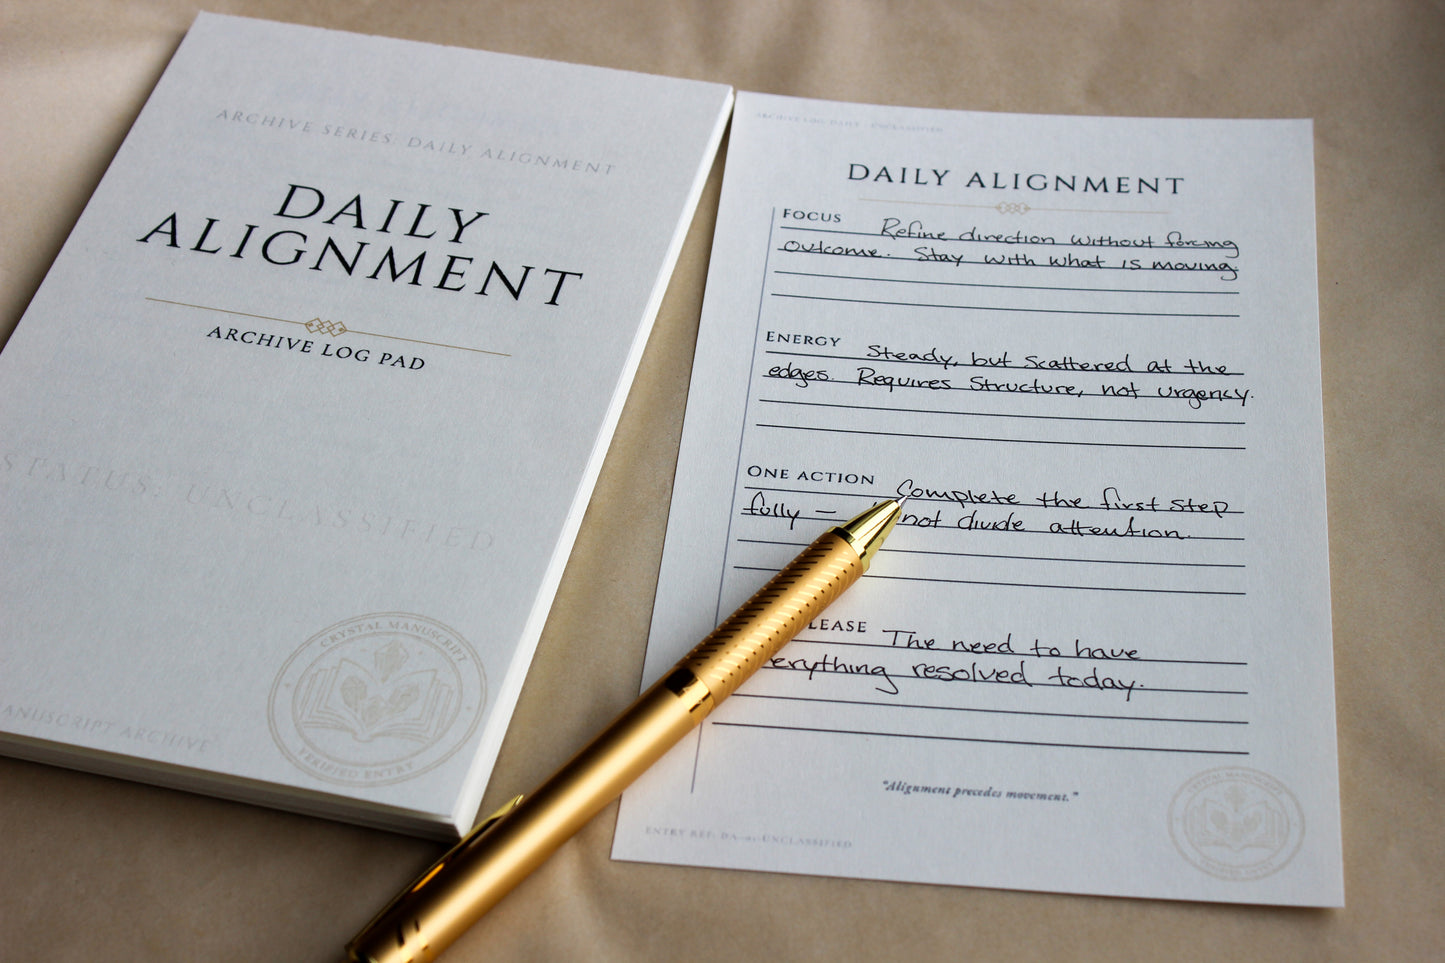 ARCHIVE SERIES: DAILY ALIGNMENT
DAILY
ALIGNMENT
ARCHIVE LOG PAD
STATUS: UNCLASSIFIED
MANUSCRIPT ARCHIVE
CRYSTAL MANUSCRIPT
VERIFIED ENTRY
ARCHIVE LOG DAILY - UNCLASSIFIED
DAILY ALIGNMENT
FOCUS Refine direction without forcing
outcome. Stay with what is moving.
ENERGY Steady, but scattered at the
edges. Requires structure, not urgency.
ONE ACTION Complete the first step
fully — not divide attention.
LEASE The need to have
erything resolved today.
"Alignment precedes movement."
ENTRY REF: UNCLASSIFIED
CRYSTAL MANUSCRIPT
VERIFIED ENTRY